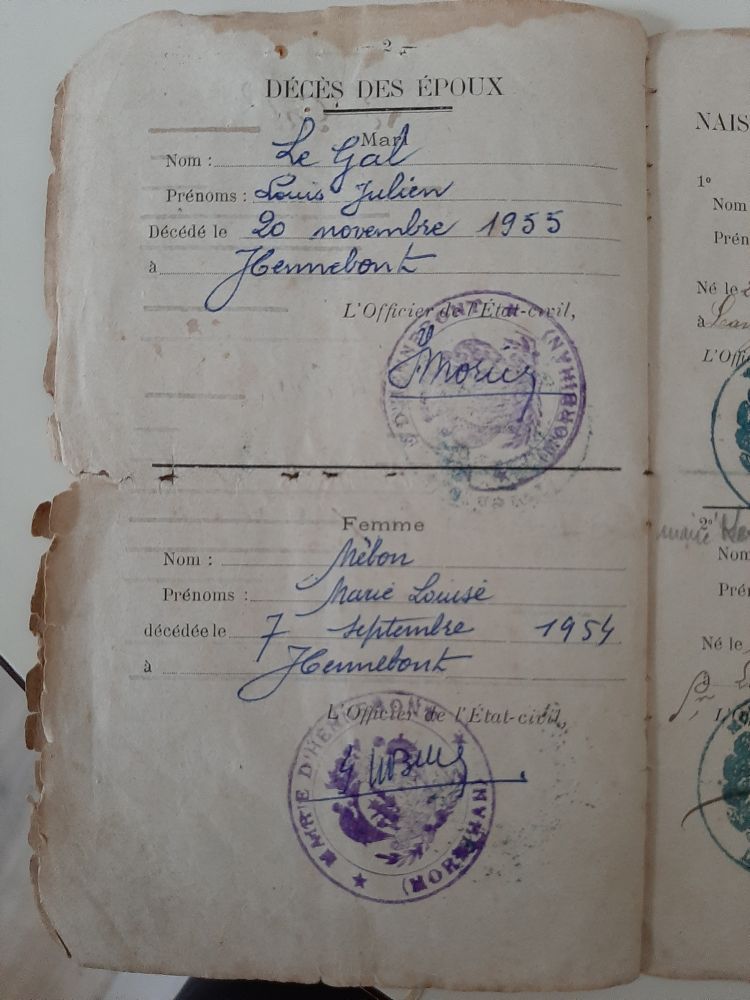 — 2 —
DÉCÈS DES ÉPOUX
Mari
Nom : Le Gal
Prénoms : Louis Julien
Décédé le 20 novembre 1955
à Hennebont
L'Officier de l'État-civil,
(MORBIHAN)
Femme
Nom : Mébon
Prénoms : Marie Louise
décédée le 7 septembre 1954
à Hennebont
L'Officier de l'État-civil,
MAIRIE D'HENNEBONT
(MORBIHAN)
NAIS
1°
Nom
Prén
Né le
à
L'Offi
2°
Nom
Pré
Né le
à